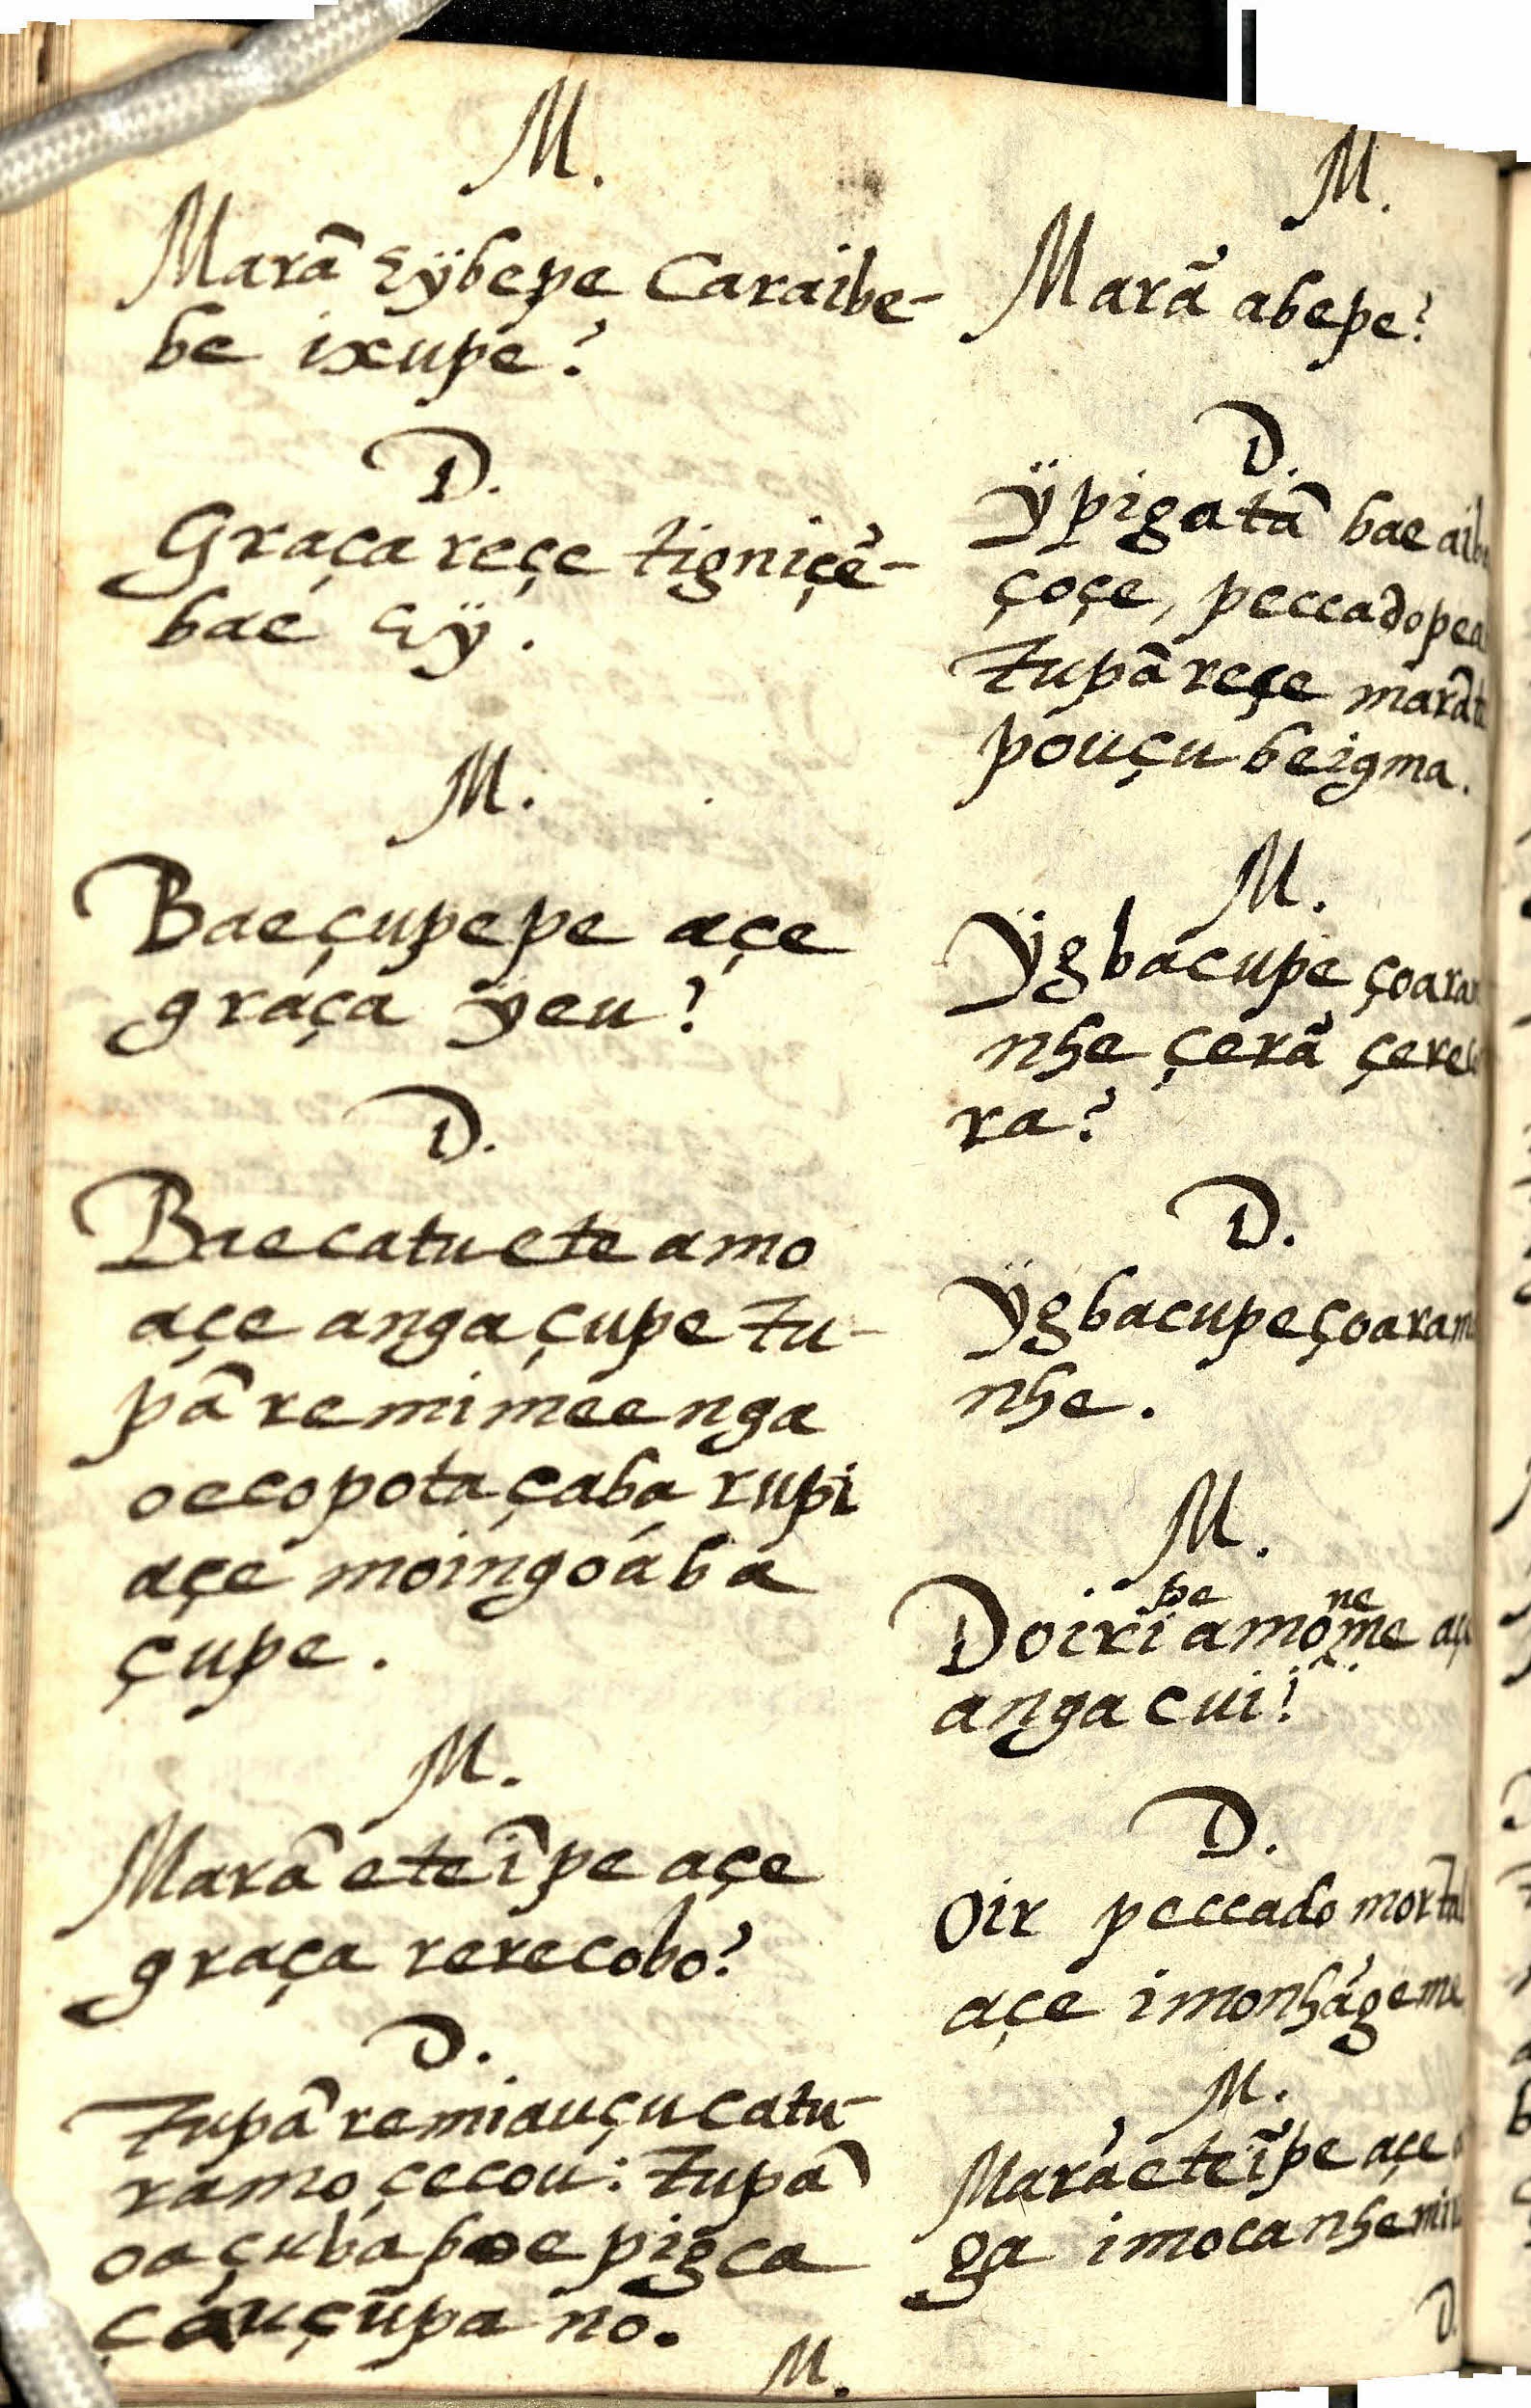 M.
Marã eÿbepe Caraibe-
be ixupe?
D.
Graça reçe tigniçẽ-
bae eÿ.
M.
Baeçupepe açe
graça ÿeu?
D.
Baecatuete amo
açe anga çupe tu-
pã remimeenga
oecopotaçaba rupi
açe moingoába
çupe.
M.
Marã eteĩpe açe
graça rerecobo?
D.
Tupã remiauçucatu-
ramo çecou: Tupã
oaçuba bae pigca
çauçũpa no.
M.
M.
Marã abepe?
D.
ÿpigatã bae
çoçe, peccadopea
Tupã reçe
pouçubeigma.
M.
ÿgbacupe
nhe çerã
ra?
D.
ÿgbacupeçoaram
nhe.
M.
pe ne
Doiri amõme
anga cui?
D.
Oir peccado mortal
açe imonhãgeme
M.
Marãeteĩpe açe
ga
D.